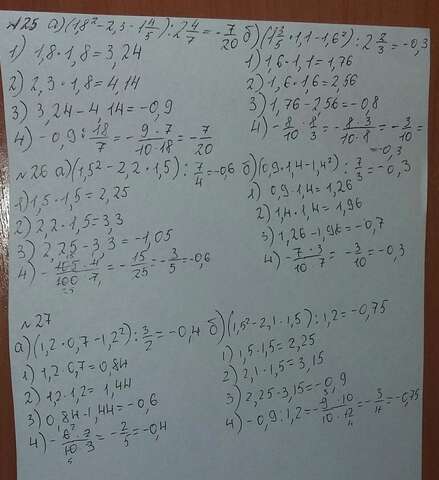 №25 а) (1,8² - 2,3 · 1 4/5) : 2 4/7 = - 7/20
1) 1,8 · 1,8 = 3,24
2) 2,3 · 1,8 = 4,14
3) 3,24 - 4,14 = -0,9
4) -0,9 : 18/7 = - 9·7/10·18 = - 7/20
б) (1 3/5 · 1,1 - 1,6²) : 2 2/3 = -0,3
1) 1,6 · 1,1 = 1,76
2) 1,6 · 1,6 = 2,56
3) 1,76 - 2,56 = -0,8
4) - 8/10 : 8/3 = - 8·3/10·8 = - 3/10 =
= -0,3
№26 а) (1,5² - 2,2 · 1,5) : 7/4 = -0,6
1) 1,5 · 1,5 = 2,25
2) 2,2 · 1,5 = 3,3
3) 2,25 - 3,3 = -1,05
4) - 105·4/100·7 = - 15/25 = - 3/5 = -0,6
б) (0,9 · 1,4 - 1,4²) : 7/3 = -0,3
1) 0,9 · 1,4 = 1,26
2) 1,4 · 1,4 = 1,96
3) 1,26 - 1,96 = -0,7
4) - 7·3/10·7 = - 3/10 = -0,3
№27
а) (1,2 · 0,7 - 1,2²) : 3/2 = -0,4
1) 1,2 · 0,7 = 0,84
2) 1,2 · 1,2 = 1,44
3) 0,84 - 1,44 = -0,6
4) - 6·2/10·3 = - 2/5 = -0,4
б) (1,5² - 2,1 · 1,5) : 1,2 = -0,75
1) 1,5 · 1,5 = 2,25
2) 2,1 · 1,5 = 3,15
3) 2,25 - 3,15 = -0,9
4) -0,9 : 1,2 = - 9·10/10·12 = - 3/4 = -0,75